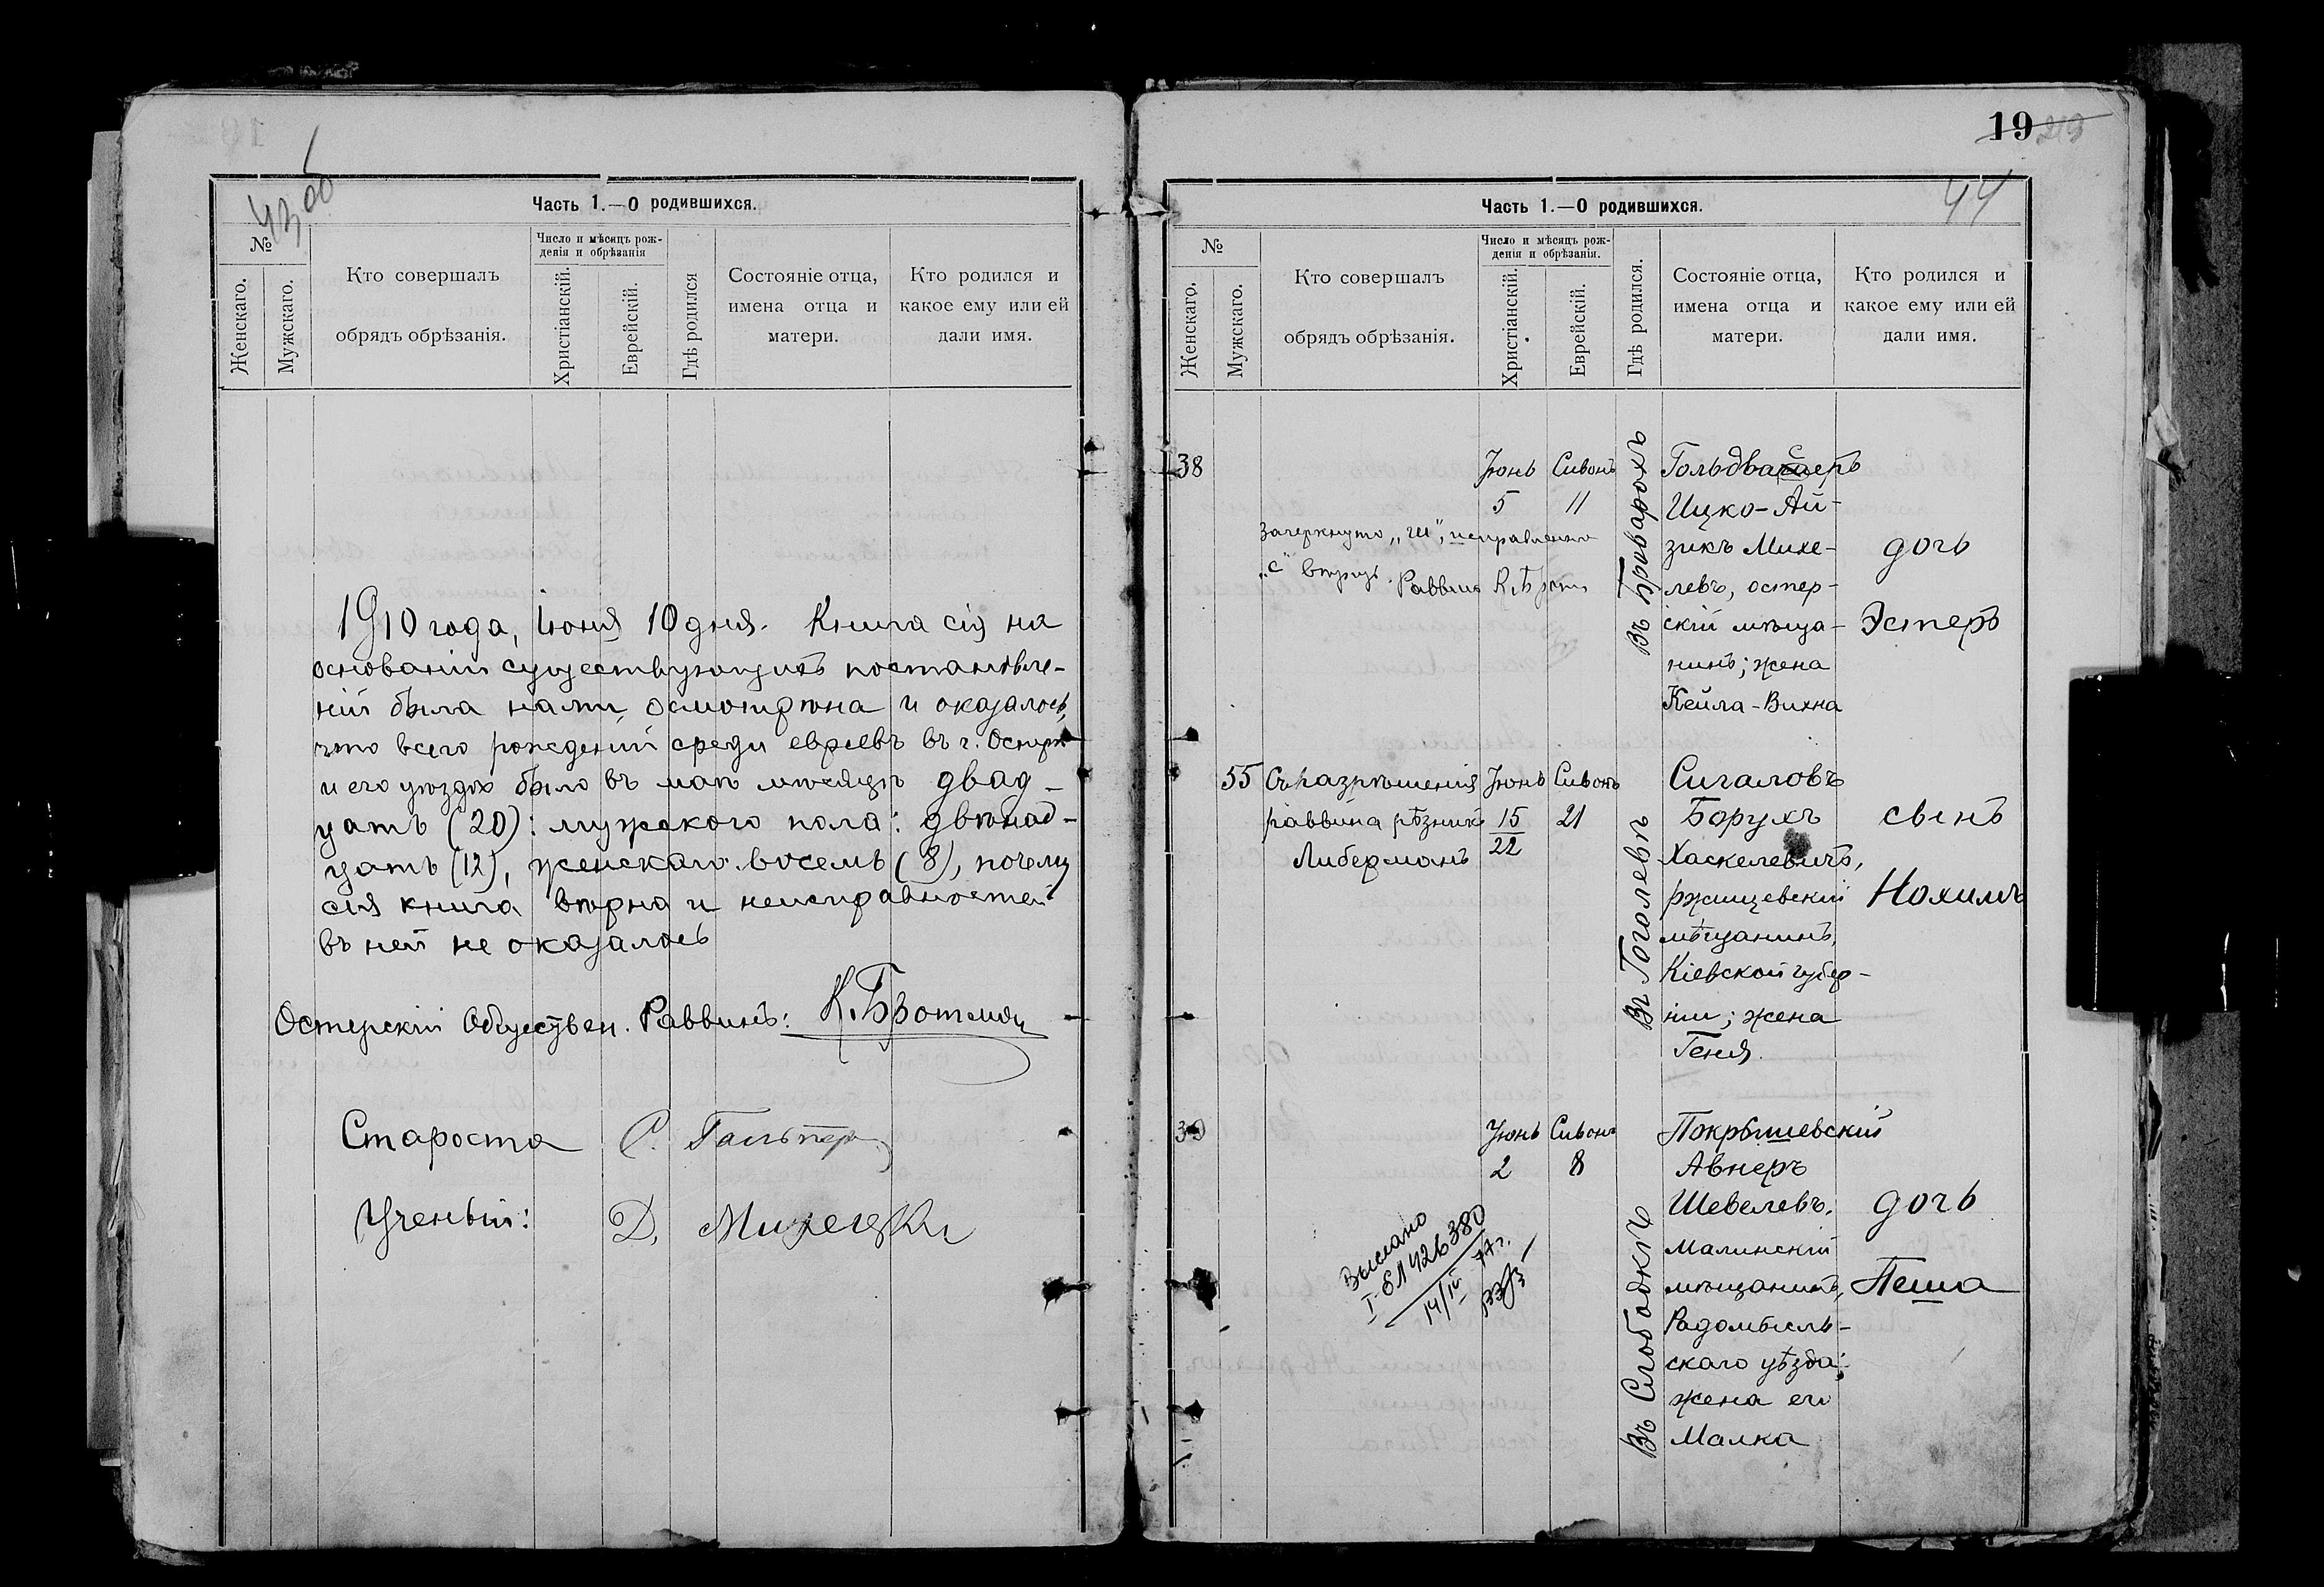 43 об
Часть 1.—О родившихся.
№
Женскаго.
Мужскаго.
Кто совершалъ
обрядъ обрѣзанія.
Число и мѣсяцъ рож-
денія и обрѣзанія
Христіанскій.
Еврейскій.
Гдѣ родился
Состояніе отца,
имена отца и
матери.
Кто родился и
какое ему или ей
дали имя.
1910 года, Іюня 10 дня. Книга сія на
основаніи существующихъ постановле-
ній была нами осмотрѣна и оказалось,
что всего рожденій среди евреевъ въ г. Острѣ
и его уѣздѣ было въ маѣ мѣсяцѣ двад-
цать (20): мужского пола: двѣнад-
цать (12), женскаго восемь (8), почему
сія книга вѣрна и неисправностей
въ ней не оказалось
Остерскій Обществен. Раввинъ: К. Бротман
Староста С. Гальперн
Ученый: Д. Милецкій
19
44
Часть 1.—О родившихся.
№
Женскаго.
Мужскаго.
Кто совершалъ
обрядъ обрѣзанія.
Число и мѣсяцъ рож-
денія и обрѣзанія.
Христіанскій.
Еврейскій.
Гдѣ родился.
Состояніе отца,
имена отца и
матери.
Кто родился и
какое ему или ей
дали имя.
38
Зачеркнуто „ш", исправленно
„с" вѣрно. Раввинъ К. Брот
Іюнь
5
Сивонъ
11
Въ Броварахъ
Гольдвасеръ
Ицко-Ай-
зикъ Михе-
левъ, остер-
скій мѣща-
нинъ; жена
Кейла-Вихна
дочь
Эстеръ
55
Съ разрѣшенія
раввина рѣзникъ
Либерманъ
Іюнь
15
22
Сивонъ
21
Въ Гоголевѣ
Сигаловъ
Борухъ
Хаскелевичъ,
ржищевскій
мѣщанинъ,
Кіевской губер-
ніи; жена
Геня.
сынъ
Нохимъ
39
Выслано
I-ЕЛ 426380
14/IV 77 г.
Іюнь
2
Сивонъ
8
Въ Слободкѣ
Покрышевскій
Авнеръ
Шевелевъ,
Малинскій
мѣщанинъ,
Радомысль-
скаго уѣзда;
жена его
Малка
дочь
Пеша